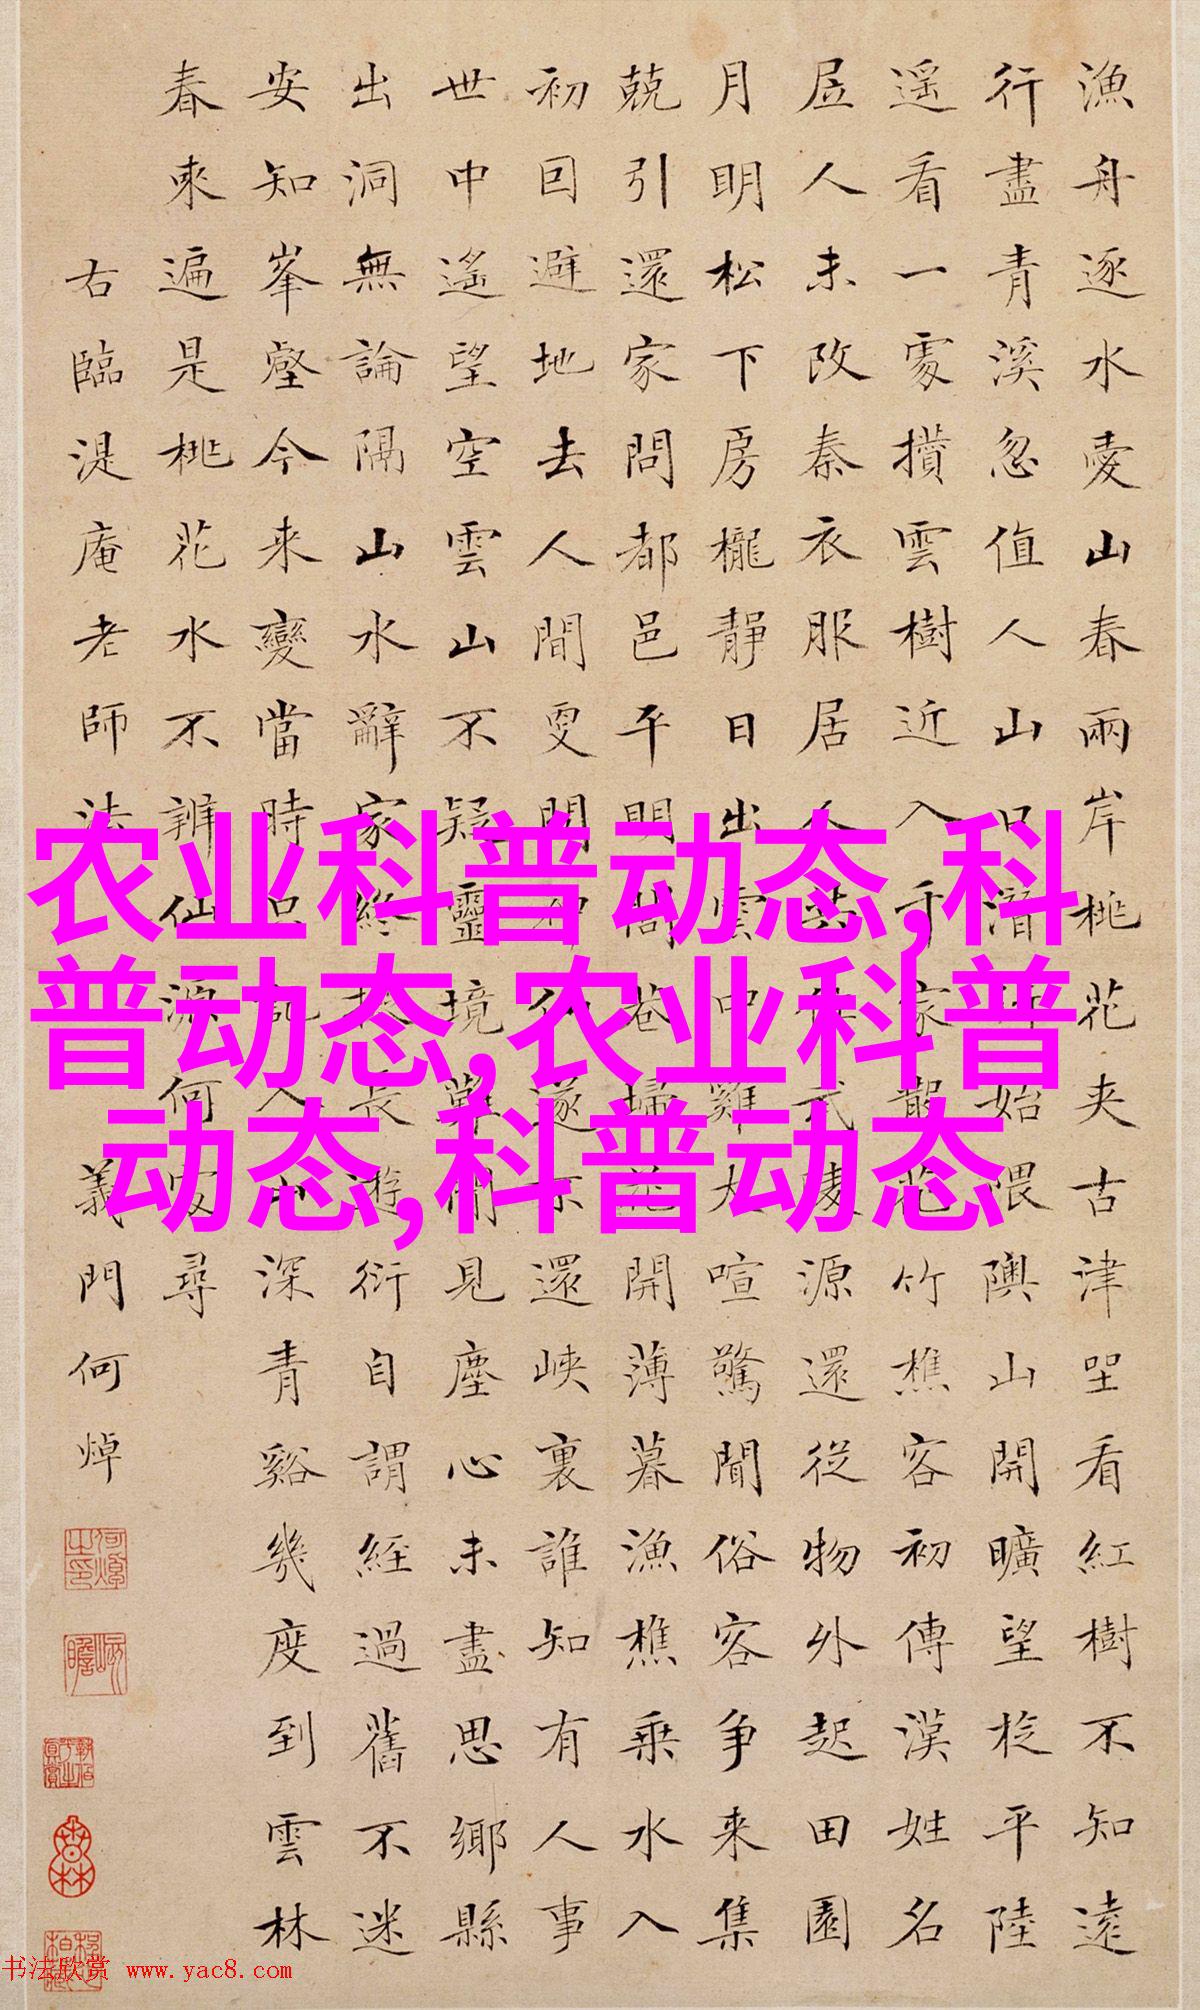 漁舟逐水愛山春兩岸桃花夾古津坐看紅樹不知遠
行盡青溪忽值人山口潛行始隈隩山開曠望旋平陸
遥看一處攢雲樹近入千家散花竹樵客初傳漢姓名
居人未改秦衣服居人共住武陵源還從物外起田園
月明松下房櫳靜日出雲中雞犬喧驚聞俗客争来集
競引還家問都邑平明閭巷掃花開薄暮漁樵乘水入
初回避地去人間更問神仙遂不還峽裏誰知有人事
世中遙望空雲山不疑靈境難聞見塵心未盡思鄉縣
出洞無論隔山水辭家終擬長遊衍自謂經過舊不迷
安知峯壑今来變當時只記入山深青谿幾度到雲林
春來遍是桃花水不辨仙源何處尋
右臨湜庵老師法
義門何焯
农业科普动态,科
普动态,农业科普
动态,科普动态
书法欣赏 www.yac8.com